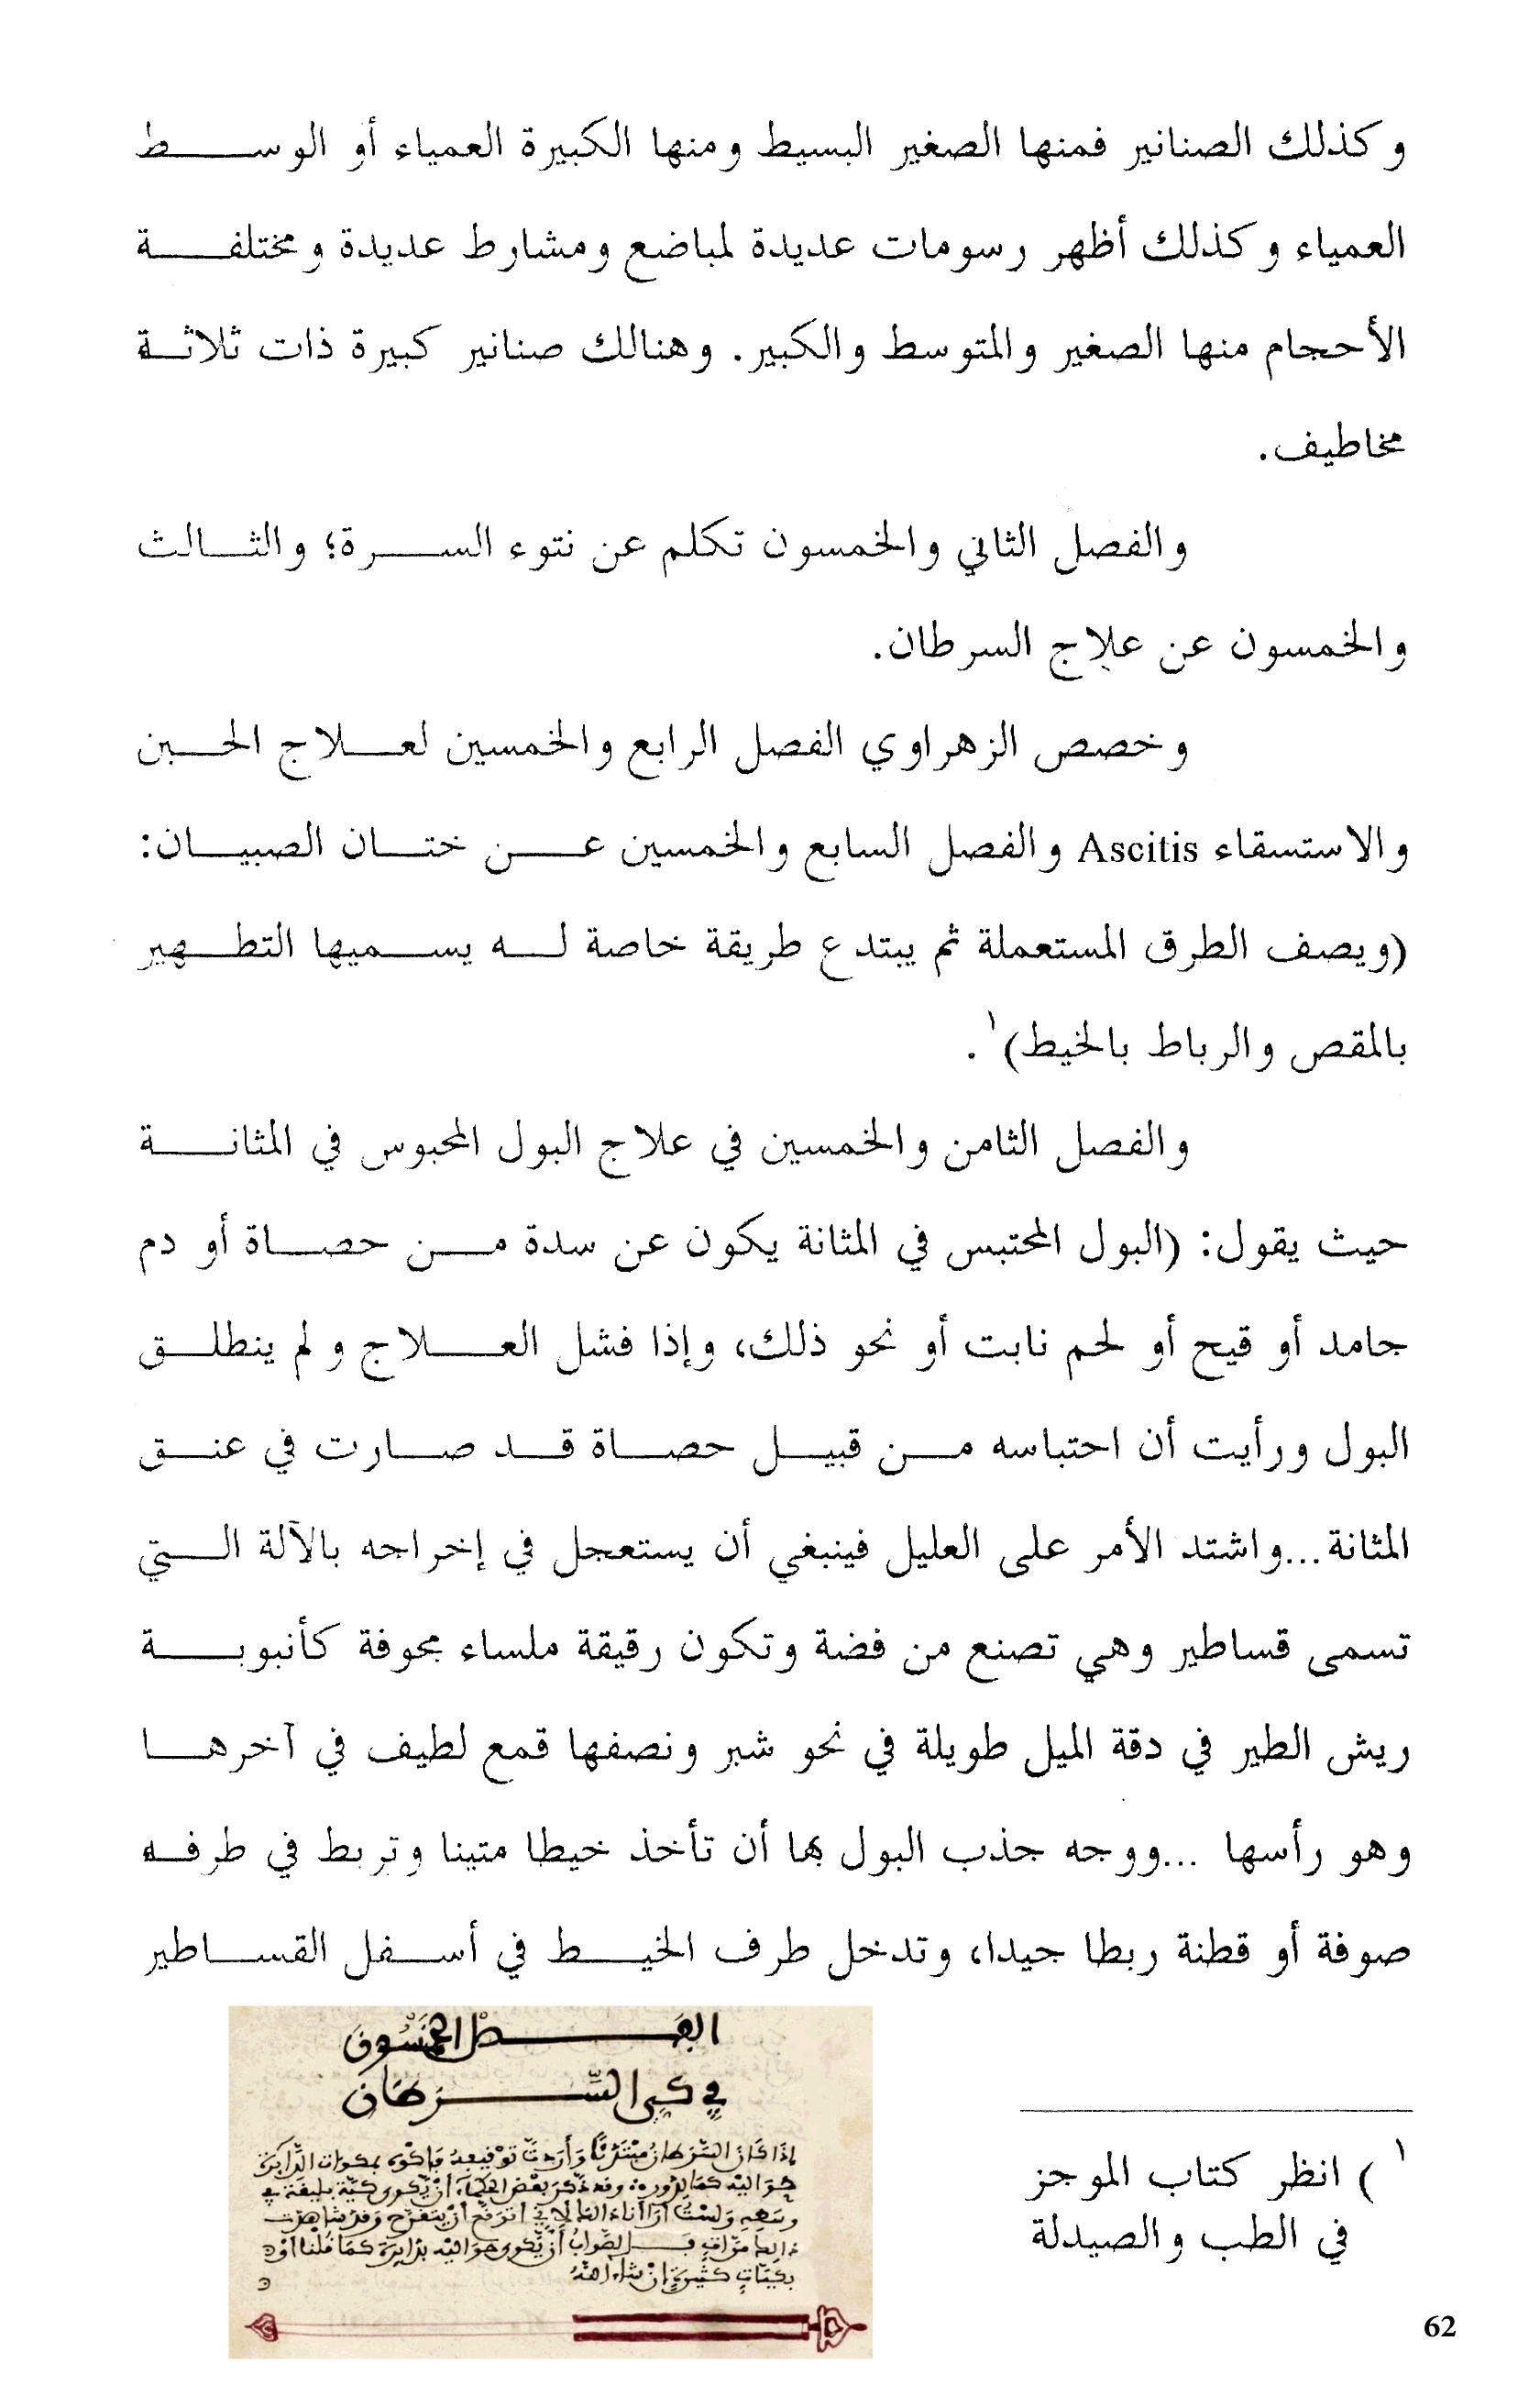 وكذلك الصنانير فمنها الصغير البسيط ومنها الكبيرة العمياء أو الوسط
العمياء وكذلك أظهر رسومات عديدة لمباضع ومشارط عديدة ومختلفة
الأحجام منها الصغير والمتوسط والكبير. وهنالك صنانير كبيرة ذات ثلاثة
مخاطيف.
والفصل الثاني والخمسون تكلم عن نتوء السرة؛ والثالث
والخمسون عن علاج السرطان.
وخصص الزهراوي الفصل الرابع والخمسين لعلاج الحبن
والاستسقاء Ascitis والفصل السابع والخمسين عن ختان الصبيان:
(ويصف الطرق المستعملة ثم يبتدع طريقة خاصة له يسميها التطهير
بالمقص والرباط بالخيط)١.
والفصل الثامن والخمسين في علاج البول المحبوس في المثانة
حيث يقول: (البول المحتبس في المثانة يكون عن سدة من حصاة أو دم
جامد أو قيح أو لحم نابت أو نحو ذلك، وإذا فشل العلاج ولم ينطلق
البول ورأيت أن احتباسه من قبيل حصاة قد صارت في عنق
المثانة...واشتد الأمر على العليل فينبغي أن يستعجل في إخراجه بالآلة التي
تسمى قساطير وهي تصنع من فضة وتكون رقيقة ملساء مجوفة كأنبوبة
ريش الطير في دقة الميل طويلة في نحو شبر ونصفها قمع لطيف في آخرها
وهو رأسها ...ووجه جذب البول بها أن تأخذ خيطا متينا وتربط في طرفه
صوفة أو قطنة ربطا جيدا، وتدخل طرف الخيط في أسفل القساطير
الفصل الخمسون
في كي السرطان
١ ) انظر كتاب الموجز
في الطب والصيدلة
62